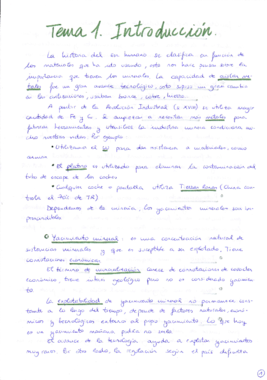 Tema 1. Introducción.
La historia del ser humano se clasifica en función de
los materiales que ha ido usando, esto nos hace pensar en la
importancia que tienen los minerales. La capacidad de aislar me-
tales fue un gran avance tecnológico, esto supuso un gran cambio
en las civilizaciones, usaban bronce, cobre, hierro...
A partir de la Revolución Industrial (s XVIII) se utiliza mayor
cantidad de Fe y C. Se empiezan a necesitar más metales para
fabricar herramientas y utensilios la industria minera condiciona en
gran medida vidas. Un ejemplo
Utilizamos el para dar resistencia a materiales, como
acero
El platino es utilizado para eliminar la contaminación del
tubo de escape de los coches
Cualquier coche o pantalla utiliza Tierras Raras (China con-
trola el % de TR)
Dependemos de la minería, los yacimientos minerales son im-
prescindibles
Yacimiento mineral: es una concentración natural de
sustancias minerales y que es susceptible a ser explotado. Tiene
connotaciones económicas
El término de mineralización carece de connotaciones de carácter
económico, tiene interés geológico pero no es considerado yacimien-
to
La explotabilidad de yacimiento mineral no permanece cons-
tante a lo largo del tiempo, depende de factores naturales, econó-
micos y tecnológicos externos al propio yacimiento. Lo que hoy
es un yacimiento mañana podría no serlo
El avance de la tecnología ayuda a explotar yacimientos
muy raros. Por otro lado, la legislación según el país dificulta
1